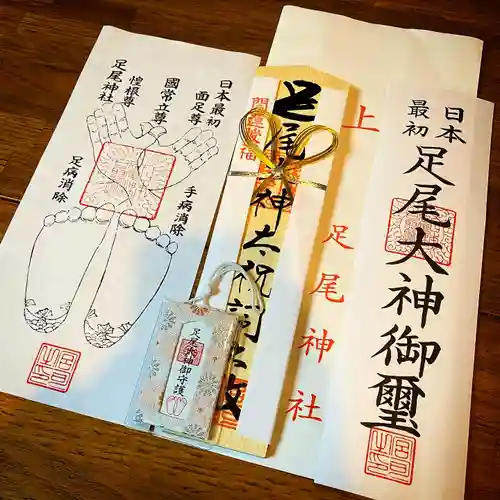 日本最初
面足尊
國常立尊
惶根尊
足尾神社
手病消除
足病消除
上
足尾神社
足尾大神太祝詞
足尾大神御守護
日本
最初
足尾大神御璽